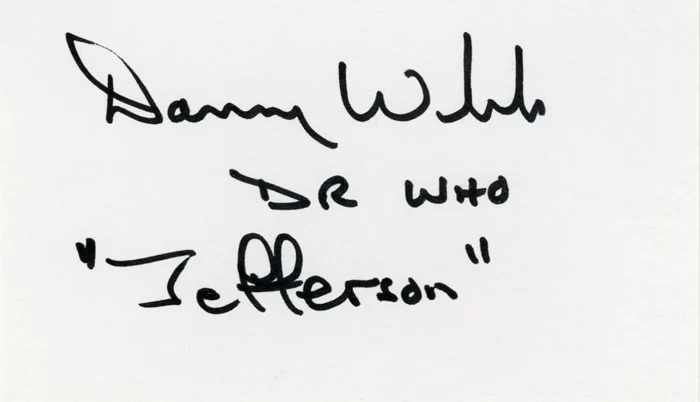 Danny Webb
DR WHO
"Jefferson"